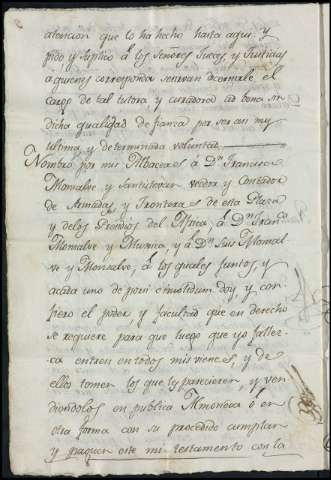 atencion que lo ha hecho hasta aqui: y
pido y suplico á los Señores Jueces, y Justicias
aquienes corresponda se sirvan dicernirle el
cargo de tal tutora y curadora ad bona sin
dicha qualidad de fianza por ser asi my
ultima y determinada voluntad
Nombro por mis Albaceas á Dn. Francisco
Monsalve y Santistevan veedor y Contador
de Armadas, y Fronteras de esta Plaza
y delos Presidios del Africa, á Dn. Franco.
Monsalve y y á Dn. Luis Monsal-
ve y Monsalve, á los quales juntos, y
acada uno de porsi et insolidum doy, y con-
fiero el poder y facultad que en derecho
se requiere para que luego que yo falles-
ca entren entodos mis vienes, y de
ellos tomen los que les parecieren, y ven
diendolos en publica Almoneda ó en
otra forma con su procedido cumplan
y paguen este mi testamento con la